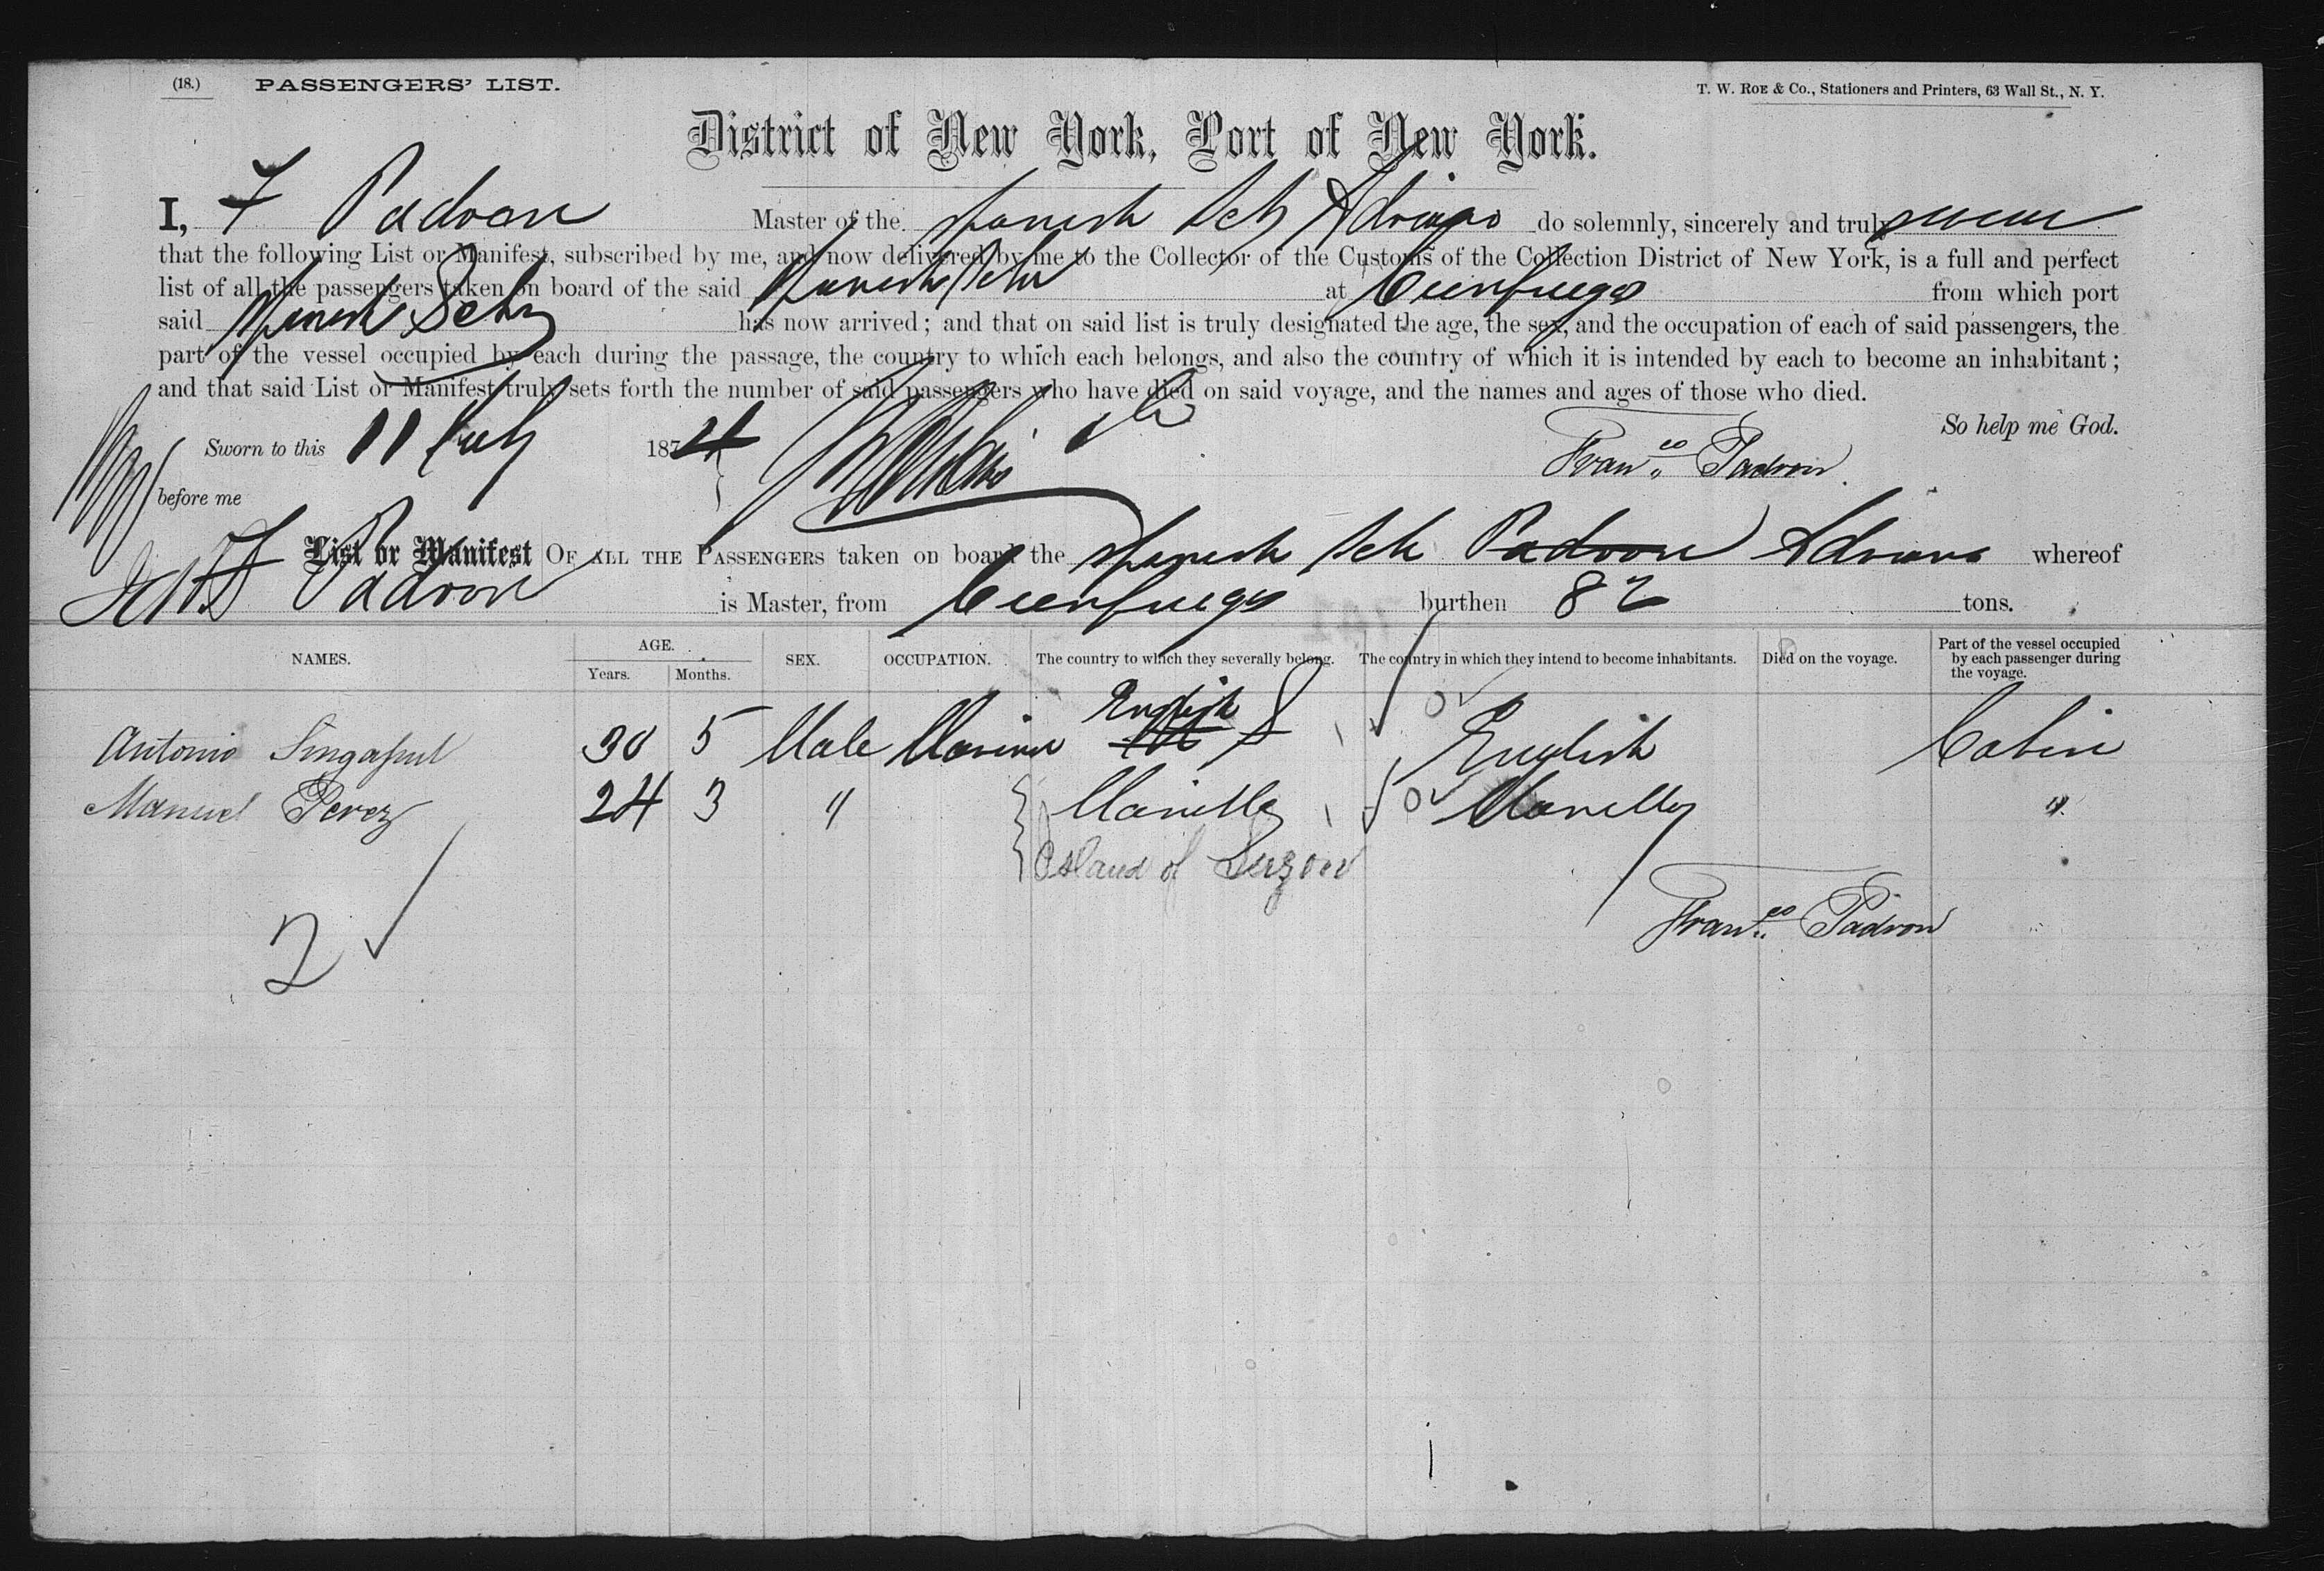 (18.) PASSENGERS' LIST. T. W. ROE & Co., Stationers and Printers, 63 Wall St., N. Y.
District of New York, Port of New York.
I, F Padron Master of the Spanish Sch Adriano do solemnly, sincerely and truly swear
that the following List or Manifest, subscribed by me, and now delivered by me to the Collector of the Customs of the Collection District of New York, is a full and perfect
list of all the passengers taken on board of the said Spanish Schr at Cienfuegos from which port
said Spanish Schr has now arrived; and that on said list is truly designated the age, the sex, and the occupation of each of said passengers, the
part of the vessel occupied by each during the passage, the country to which each belongs, and also the country of which it is intended by each to become an inhabitant;
and that said List or Manifest truly sets forth the number of said passengers who have died on said voyage, and the names and ages of those who died.
So help me God.
Sworn to this 11 July 1874
Franco Padron
before me
List or Manifest OF ALL THE PASSENGERS taken on board the Spanish Sch Padron Adriano whereof
F Padron is Master, from Cienfuegos burthen 82 tons.
NAMES. AGE. Years. Months. SEX. OCCUPATION. The country to which they severally belong. The country in which they intend to become inhabitants. Died on the voyage. Part of the vessel occupied by each passenger during the voyage.
English
Antonio Singapul 30 5 Male Mariner English Cabin
Manuel Perez 24 3 " Manilla Manilla "
Island of Luzon
Franco Padron
2